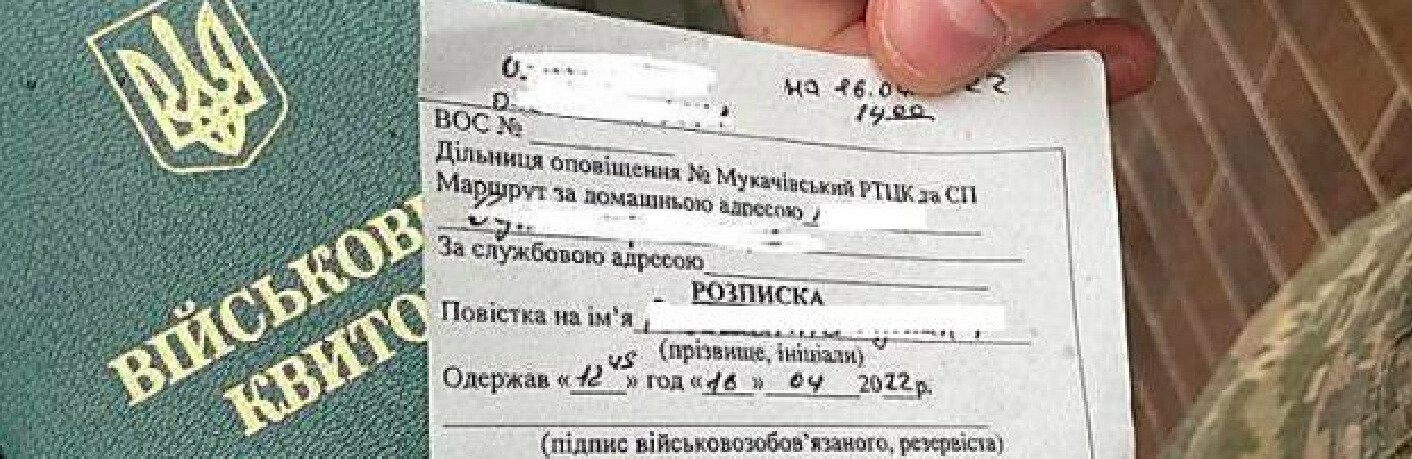 ВІЙСЬКОВ
КВИТО
на 16.04 22
14 00
ВОС №
Дільниця оповіщення № Мукачівський РТЦК за СП
Маршрут за домашньою адресою
За службовою адресою
РОЗПИСКА
Повістка на ім'я
(прізвище, ініціали)
Одержав «12 45» год «16» 04 2022 р.
(підпис військовозобов'язаного, резервіста)